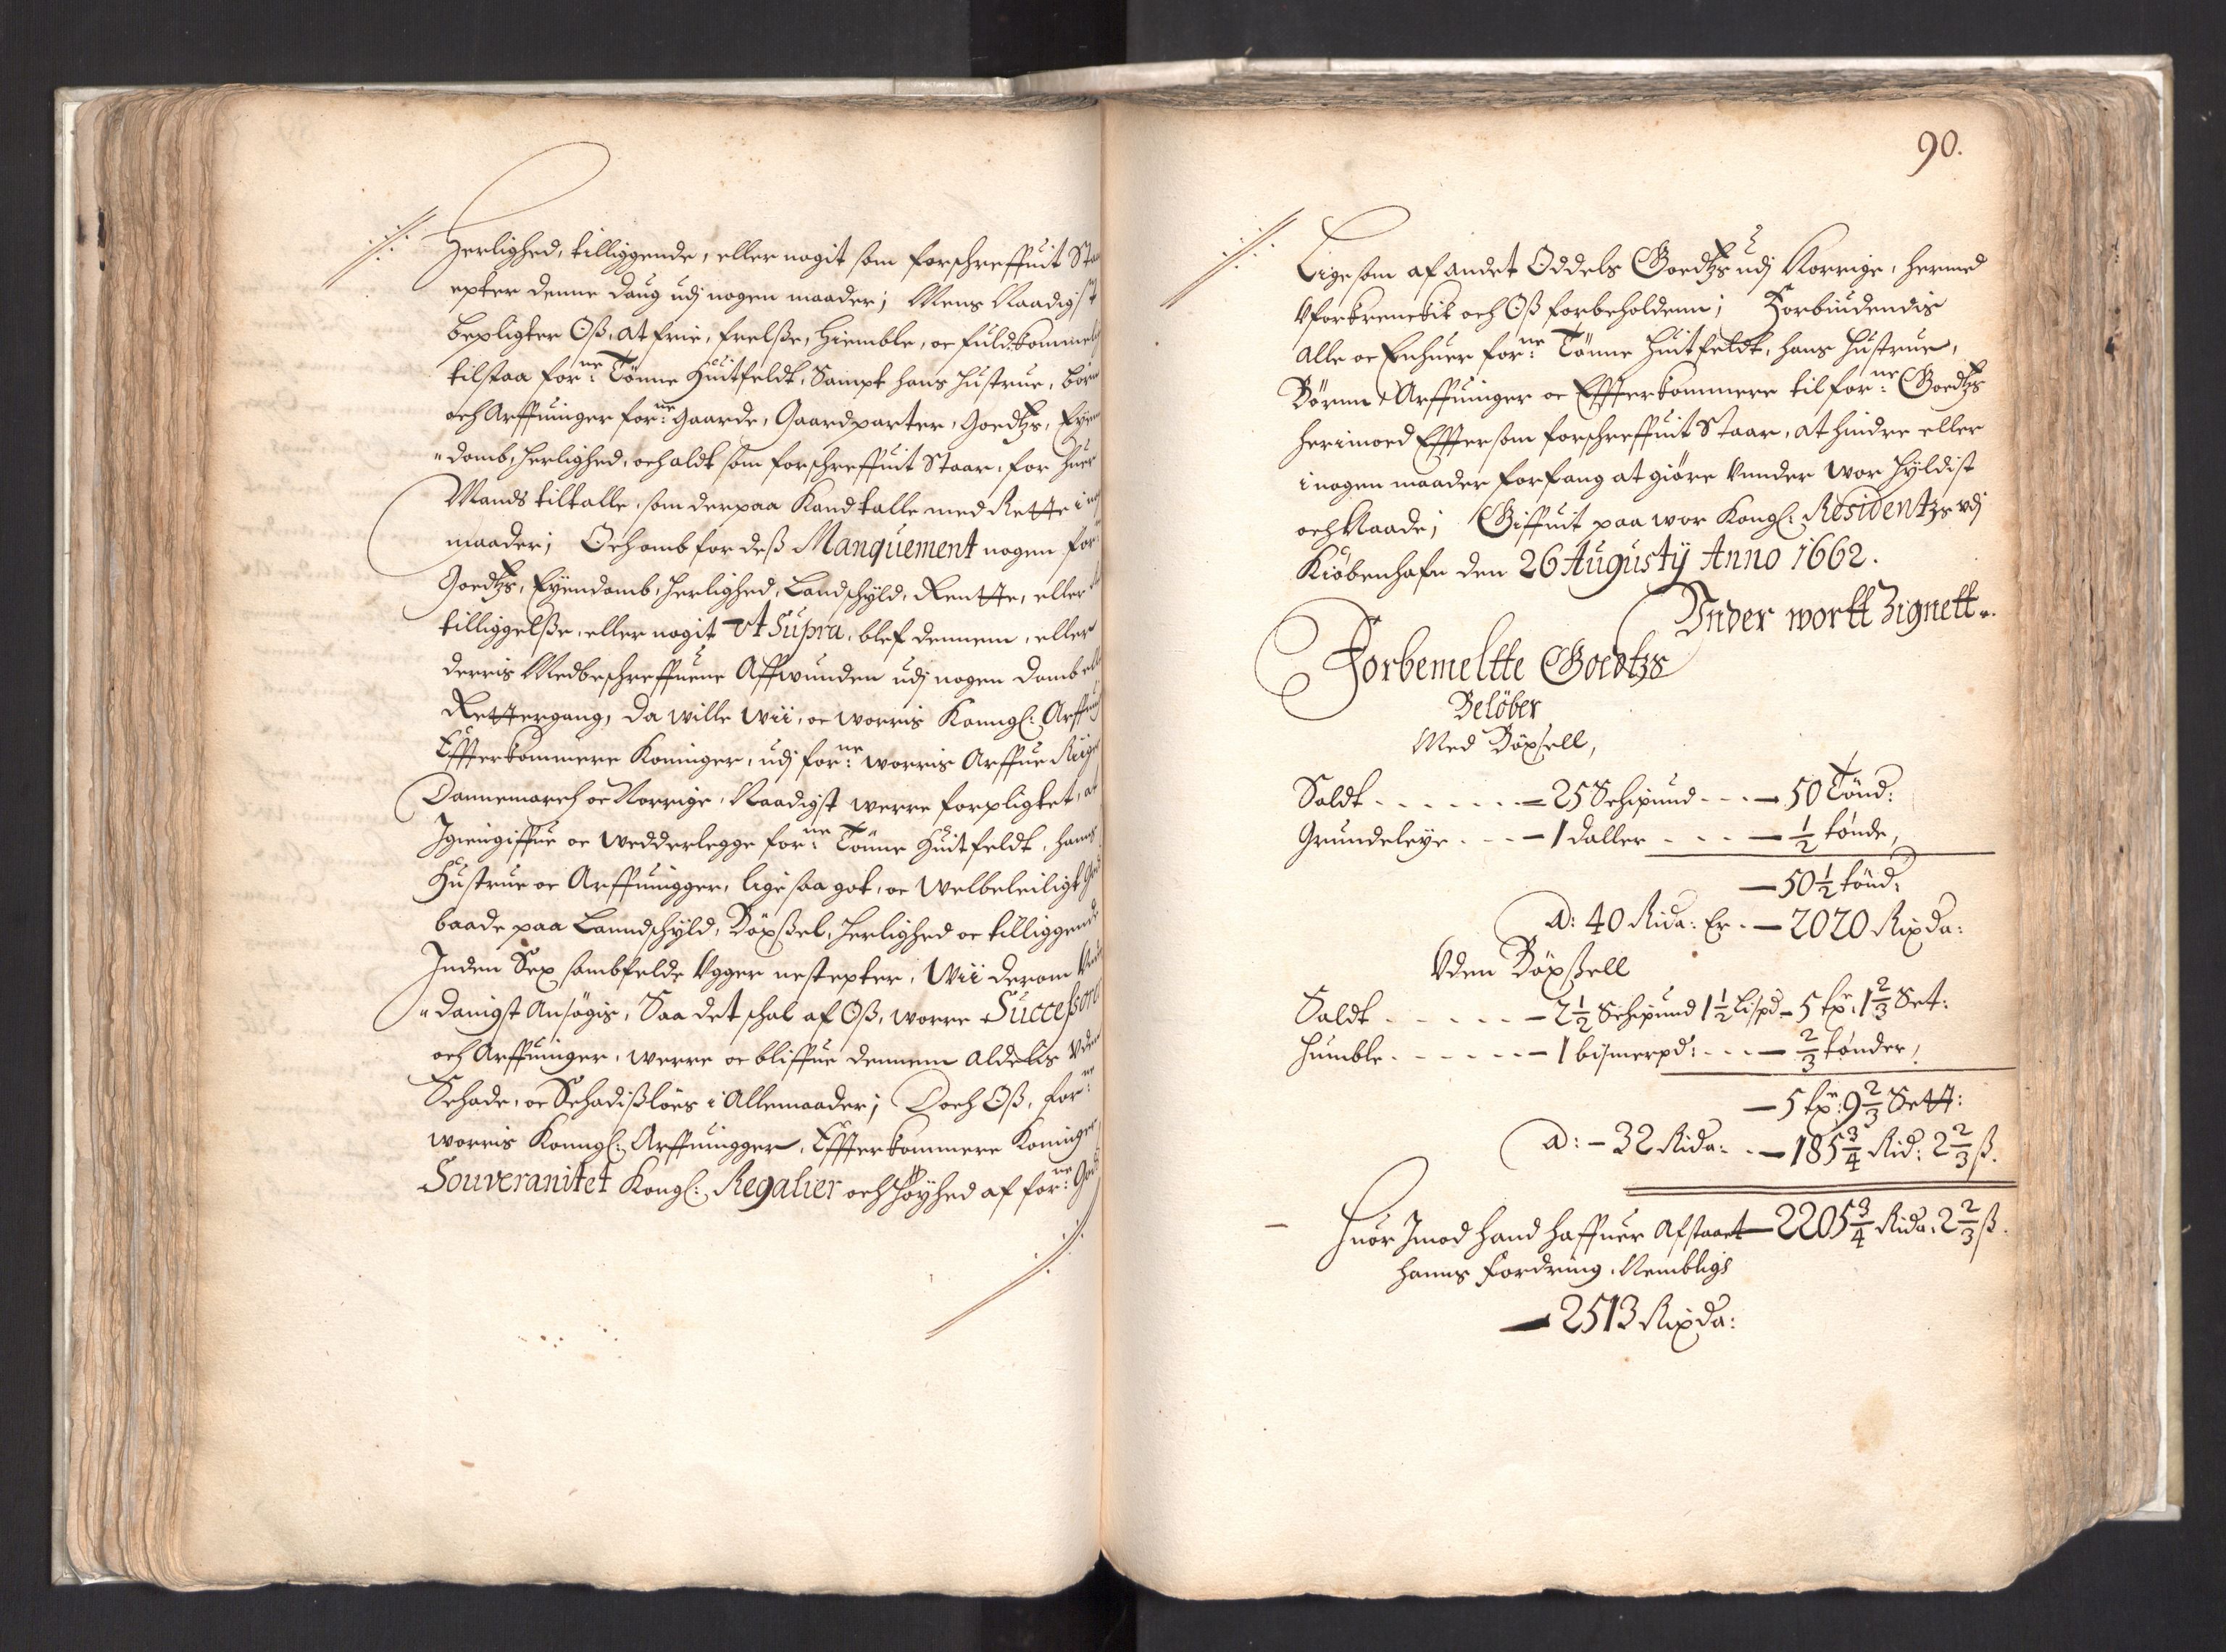 Herlighed, tilliggende, eller nogit som forschreffuit Sta
epter denne daug udj nogen maader; Mens Naadigst
bepligter Oß, at frie, frelße, Hiemble, oc fuldkommel
tilstaa forne: Tönne Huitfeldt, Sampt hans Hustrue, börn
och Arffuinger forne: Gaarde, Gaardparter, Goedtzs, Eyen
"domb, Herlighed, och aldt som forschreffuit Staar, for huer
Mands tiltalle, som derpaa Kand talle med Rette i
maader; Och omb for deß Manquement nogen for
Goedtzs, Eyendomb, Herlighed, Landschyld, Rentte, eller
tilliggelße, eller nogit Vt Supra, blef dennem, eller
derris Medbeschreffuene Affwunden udj nogen domb ell
Rettergang, da wille Wii, oc worris Konngl: Arffui
Effterkommere Koninger, udj forne: worris Arffue Riiger
Dannemarch oc Norrige, Naadigst werre forpligtet, at
Igiengiffue oc wedderlegge forne: Tönne Huitfeldt, hans
Hustrue oc Arffuingger, lige saa got, oc welbeleiligt God
baade paa Lanndschyld, Böxßel, Herlighed oc tilliggende
Inden Sex sambfelde Vgger nest epter, Wii derom Vnd
"danigst Ansögis, Saa det schal af Oß, worre Successore
och Arffuinger, werre oc bliffue dennem aldelis Vden
Schade, oc Schadißlöes i Allemaader; Doch Oß, forne:
worris Konngl: Arffuingger, Effterkommere Koninger
Souveranitet Kongl: Regalier och Höyhed af forne: God
90.
Lige som af andet Oddels Goedtzs udj Norrige, hermed
Vforkrenckit och Oß forbeholdenn; Forbiudendis
alle oc Enhuer forne: Tönne Huitfeldt, hans Hustrue,
Börnn Arffuinger oc Effterkommere til forne: Goedtzs
herimoed Effter som forschreffuit Staar, at hindre eller
i nogen maader forfang at giöre Vunder Wor Hyldist
och Naade; Giffuit paa wor Kongl: Residentzs vdj
Kiöbenhafn den 26 Augustij Anno 1662.
Vnder wortt Zignett.
Forbemeltte Goedtzs
Belöber
Med Böxsell,
Saldt - - - - - - - 25 Schipund - - - 50 Tönd:
Grundeleye - - - 1 daller - - - - ½ tönde,
50 ½ tönd:
A: 40 Rida: Er - 2020 Rixda:
Vden Böxßell
Saldt - - - - - - 2½ Schipund 1½ Lispd - 5 tr: 1⅔ Set:
Humble - - - - - - 1 bismerpd: - - - ⅔ tönder,
5 tr: 9⅔ Sett:
A: - 32 Rida: - - 185¾ Rid: 2⅔ ß.
Huor Imod hand haffuer Afstaaet 2205¾ Rida: 2⅔ ß.
hanns fordring, Nembligh
2513 Rixda: